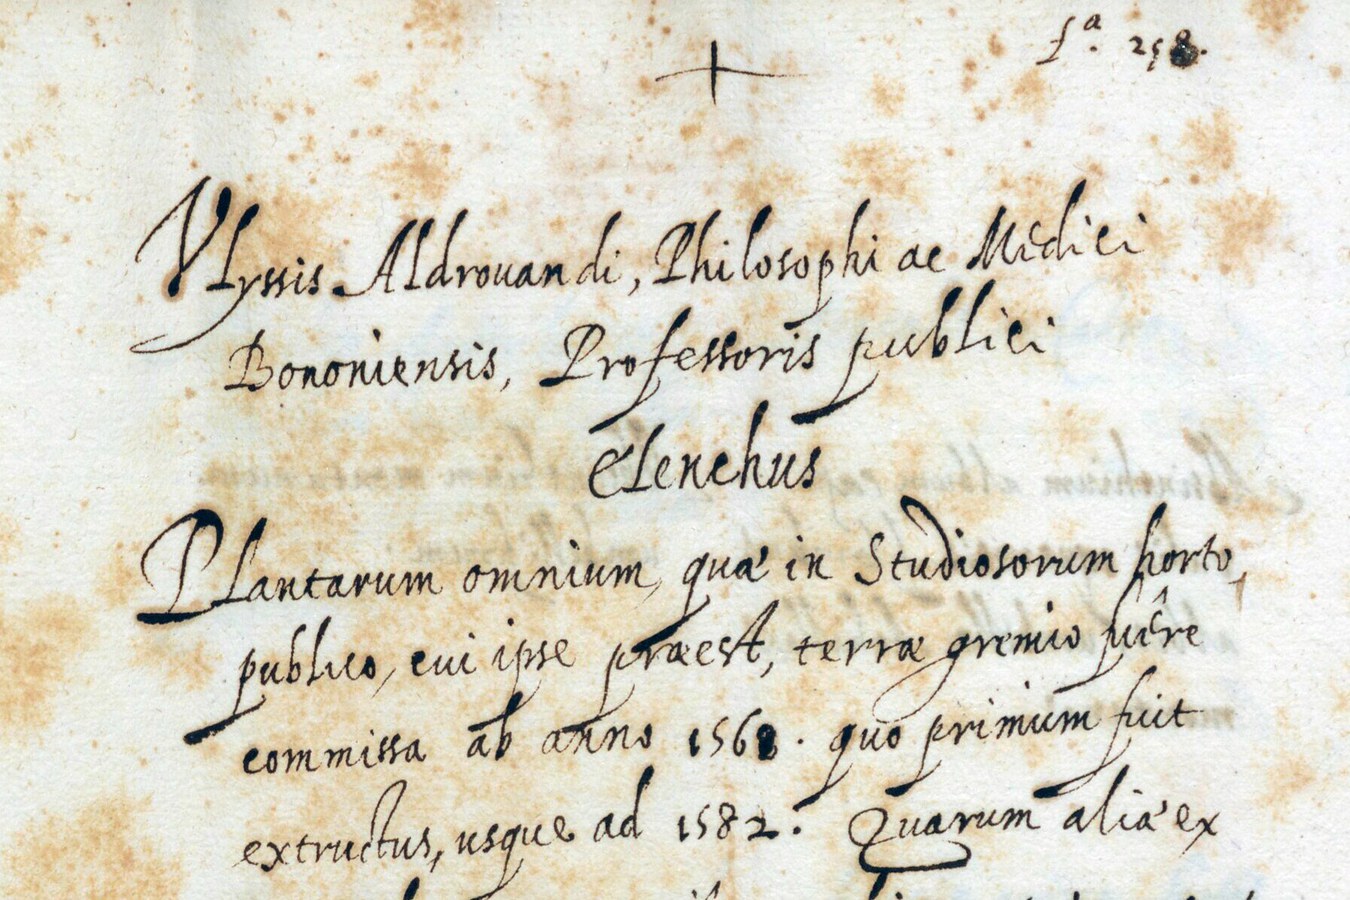 fª. 258.
Vlyssis Aldrouandi, Philosophi ac Medici
Bononiensis, Professoris publici
Elenchus
Plantarum omnium, quæ in Studiosorum horto,
publico, cui ipse præest, terræ gremio fuêre
commissa ab anno 1568. quo primum fuit
extructus, usque ad 1582. Quarum aliæ ex